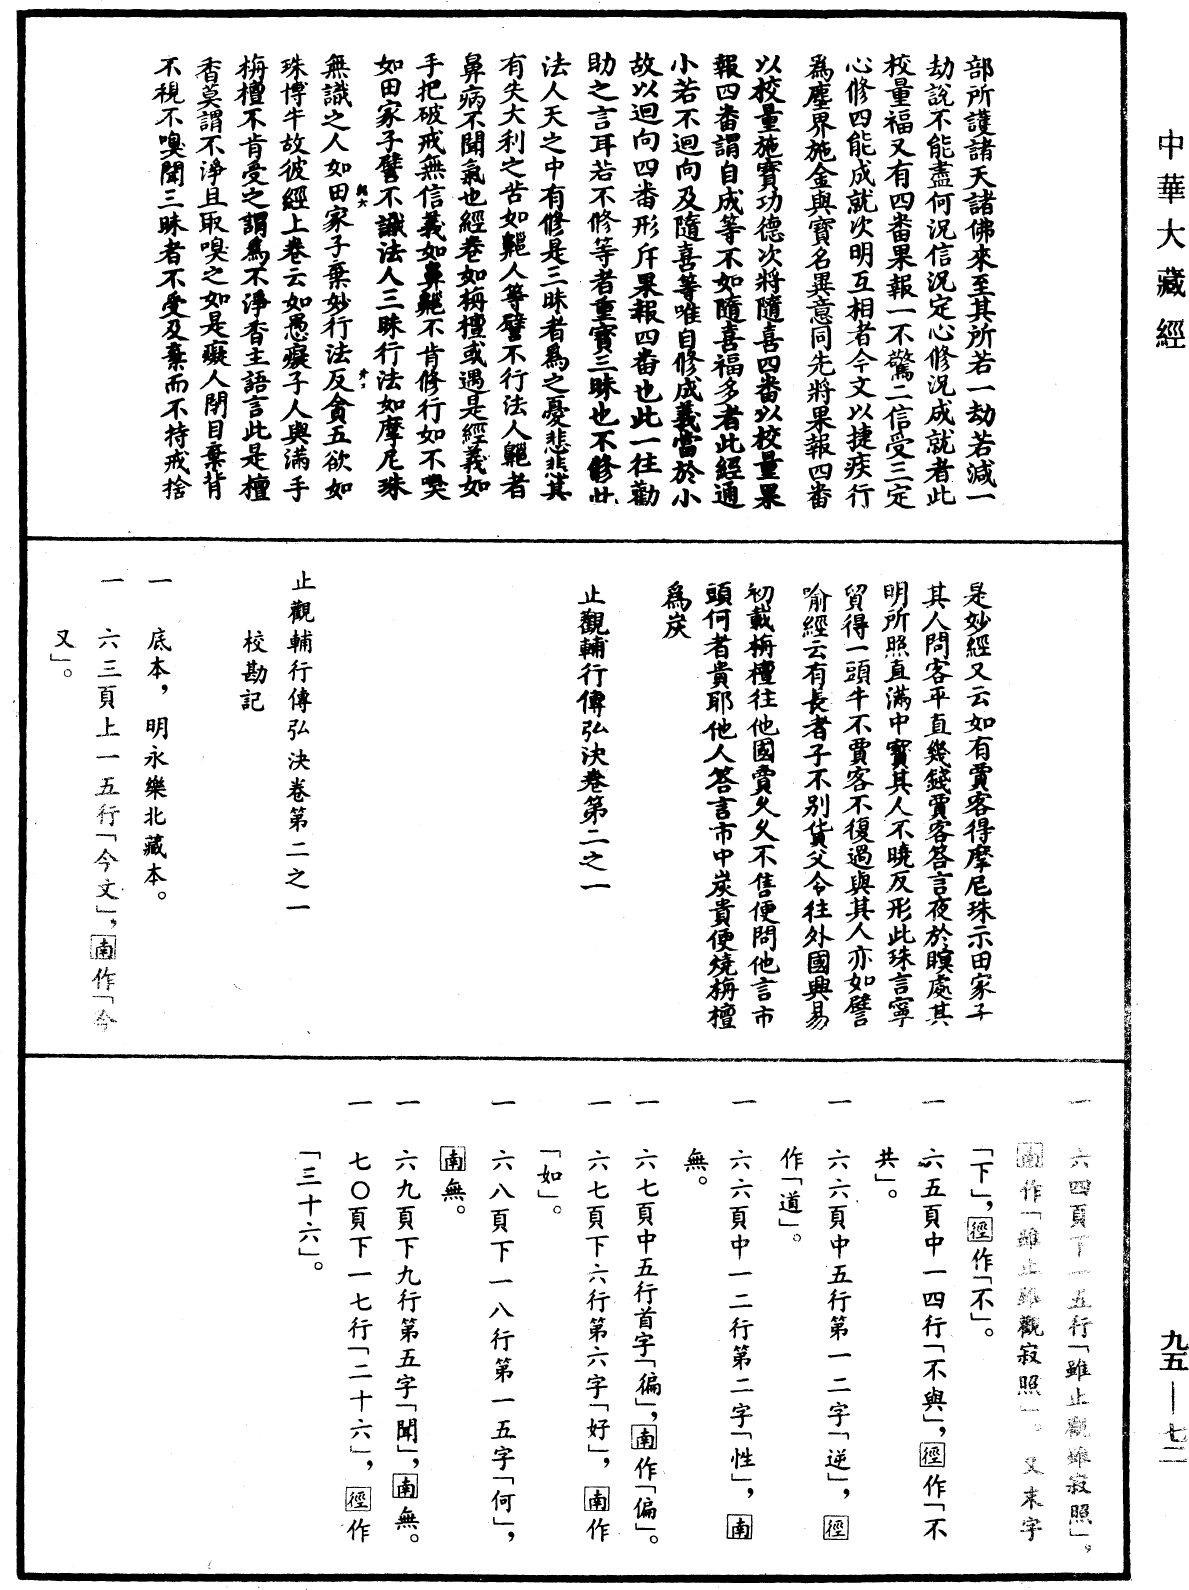 中華大藏經
部所護諸天諸佛來至其所若一劫若減一
劫說不能盡何況信況定心修況成就者此
校量福又有四番果報一不驚二信受三定
心修四能成就次明互相者今文以捷疾行
為塵界施金與寶名異意同先將果報四番
以校量施寶功德次將隨喜四番以校量果
報四番謂自成等不如隨喜福多者此經通
小若不迴向及隨喜等唯自修成義當於小
故以迴向四番形斥果報四番也此一往勸
助之言耳若不修等者重寶三昧也不修此
法人天之中有修是三昧者為之憂悲悲其
有失大利之苦如齆人等譬不行法人齆者
鼻病不聞氣也經卷如栴檀或遇是經義如
手把破戒無信義如鼻齆不肯修行如不嗅
如田家子譬不識法人三昧行法如摩尼珠
無識之人如田家子棄妙行法反貪五欲如
珠博牛故彼經上卷云如愚癡子人與滿手
栴檀不肯受之謂為不淨香主語言此是檀
香莫謂不淨且取嗅之如是癡人閉目棄背
不視不嗅聞三昧者不受及棄而不持戒捨
是妙經又云如有賈客得摩尼珠示田家子
其人問客平直幾錢賈客答言夜於瞑處其
明所照直滿中寶其人不曉反形此珠言寧
貿得一頭牛不賈客不復過與其人亦如譬
喻經云有長者子不別貨父令往外國興易
初載栴檀往他國賣久久不售便問他言市
頭何者貴耶他人答言市中炭貴便燒栴檀
為炭
止觀輔行傳弘決卷第二之一
止觀輔行傳弘決卷第二之一
校勘記
一 底本，明永樂北藏本。
一 六三頁上一五行「今文」，南作「今
又」。
一 六四頁下一五行「雖止觀雖寂照」，
南作「雖止雖觀寂照」。又末字
「下」，徑作「不」。
一 六五頁中一四行「不與」，徑作「不
共」。
一 六六頁中五行第一二字「逆」，徑
作「道」。
一 六六頁中一二行第二字「性」，南
無。
一 六七頁中五行首字「徧」，南作「偏」。
一 六七頁下六行第六字「好」，南作
「如」。
一 六八頁下一八行第一五字「何」，
南無。
一 六九頁下九行第五字「聞」，南無。
一 七〇頁下一七行「二十六」，徑作
「三十六」。
九五—七二